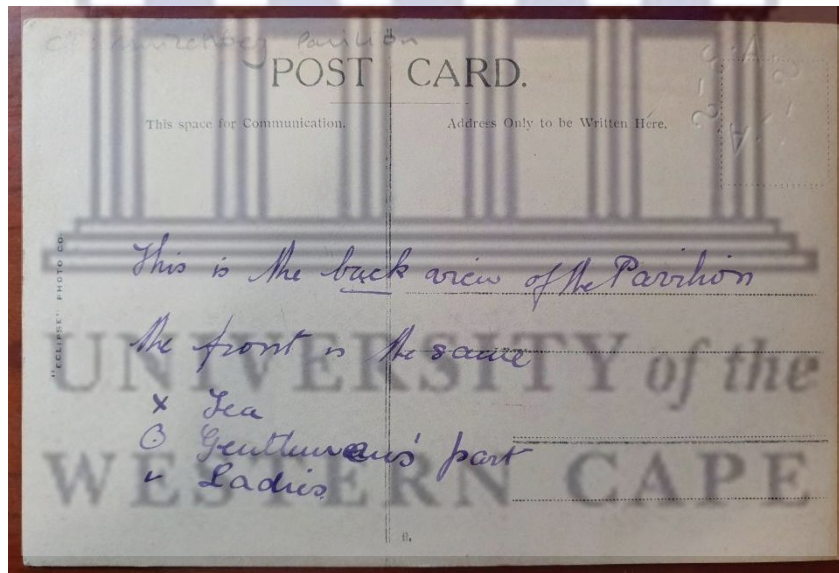 Muizenberg Pavilion
POST CARD.
This space for Communication.
Address Only to be Written Here.
"ECLIPSE" PHOTO CO.
This is the back view of the Pavilion
the front is the same
x Sea
Gentleman's part
✓ Ladies
UNIVERSITY of the
WESTERN CAPE